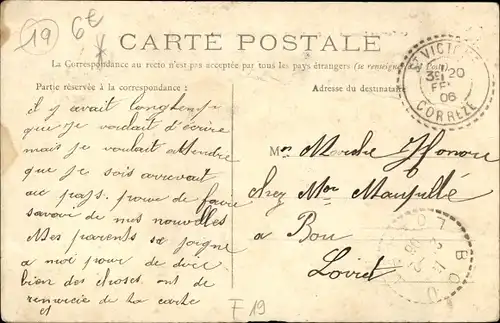 19
6€
CARTE POSTALE
La Correspondance au recto n'est pas acceptée par tous les pays étrangers (se renseigner à la Poste)
Partie réservée à la correspondance :
Adresse du destinataire
ST VICTOUR
20
FEVR
06
CORREZE
il y avait longtemp
que je voulait d'écrire
mais je voulait attendre
que je sois arrevait
au pays. pour de faire
savoir de mes nouvelles
Mes parents se joigne
a moi pour de dire
bien des choses ont de
remercie de ta carte
et
Mr Marche Honore
chez Mr
a Bou
Loiret
BOU
F 19